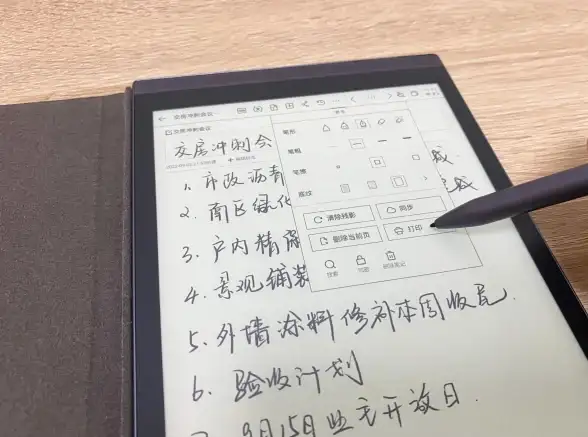 交房冲刺会议
交房冲刺会议
交房冲刺会
1. 市政沥青
2. 南区绿化
3. 户内精保
4. 景观铺装
5. 外墙涂料修补本周收尾.
6. 验收计划
9月15日业主开放日.
笔形
笔粗
底纹
清除残影
同步
删除当前页
打印
搜索